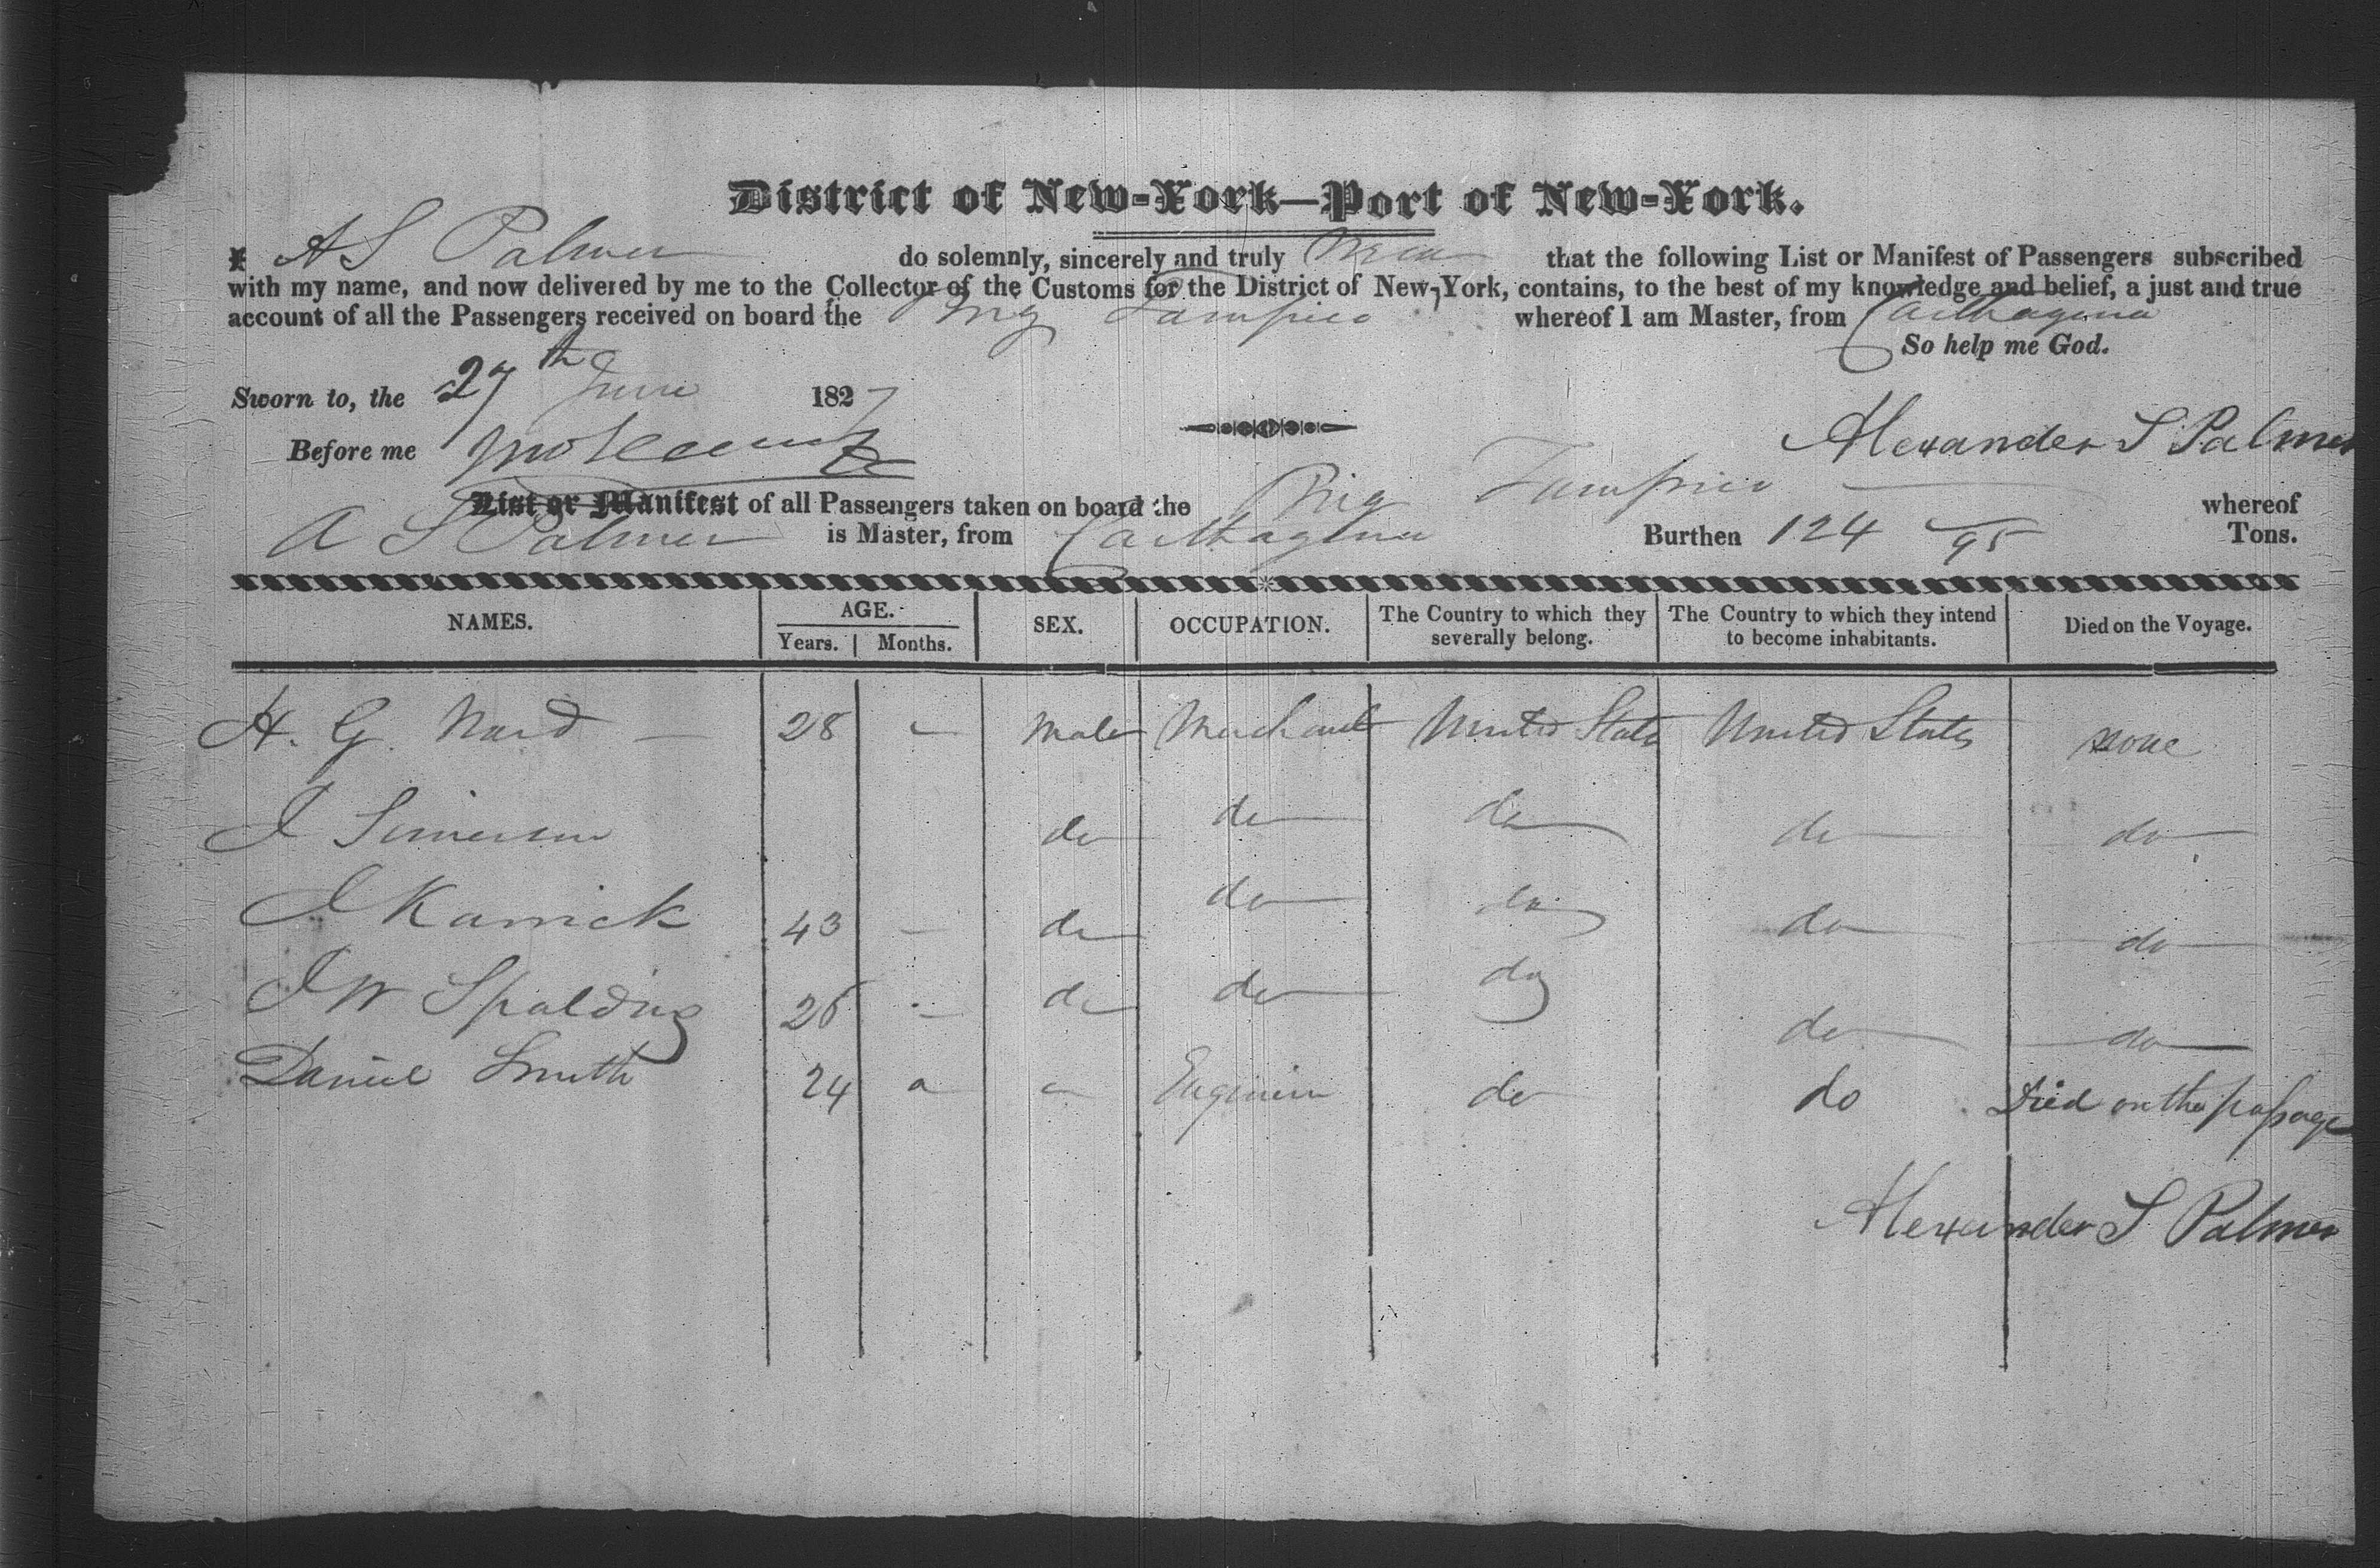 District of New-York—Port of New-York.
I A S Palmer do solemnly, sincerely and truly swear that the following List or Manifest of Passengers subscribed
with my name, and now delivered by me to the Collector of the Customs for the District of New-York, contains, to the best of my knowledge and belief, a just and true
account of all the Passengers received on board the Brig Tampico whereof I am Master, from Carthagena
So help me God.
Sworn to, the 27th June 1827
Before me
Alexander S Palmer
List or Manifest of all Passengers taken on board the Brig Tampico whereof
A S Palmer is Master, from Carthagena Burthen 124 /95 Tons.
NAMES. AGE. Years. Months. SEX. OCCUPATION. The Country to which they severally belong. The Country to which they intend to become inhabitants. Died on the Voyage.
H. G. Ward — 28 - Male Merchant United States United States none
J do do do do do
J Karrick 43 - do do do do do
J W Spalding 26 - do do do do do
Daniel Smith 24 Engineer do do Died on the passage
Alexander S Palmer